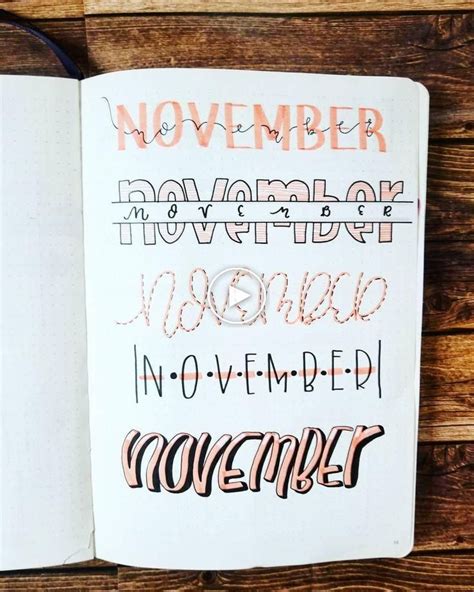 NOVEMBER
november
november
NOVEMBER
november
N•O•V•E•M•B•E•R
NOVEMBER